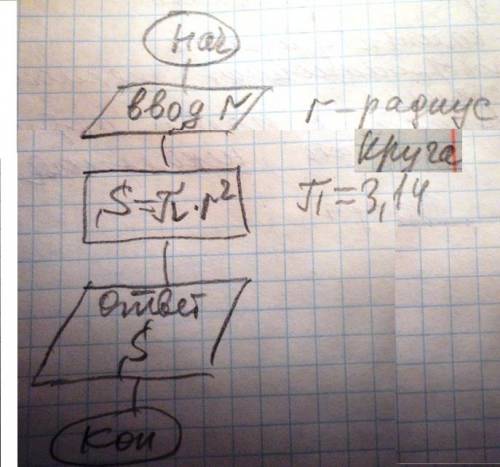 Нач
ввод r
r - радиус
круга
S=π·r²
π=3,14
ответ
S
Кон